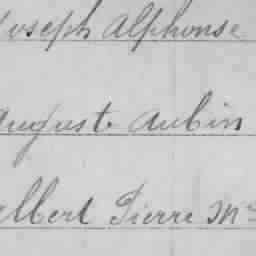 Joseph Alphonse
Auguste Aubin
Albert Pierre Mc